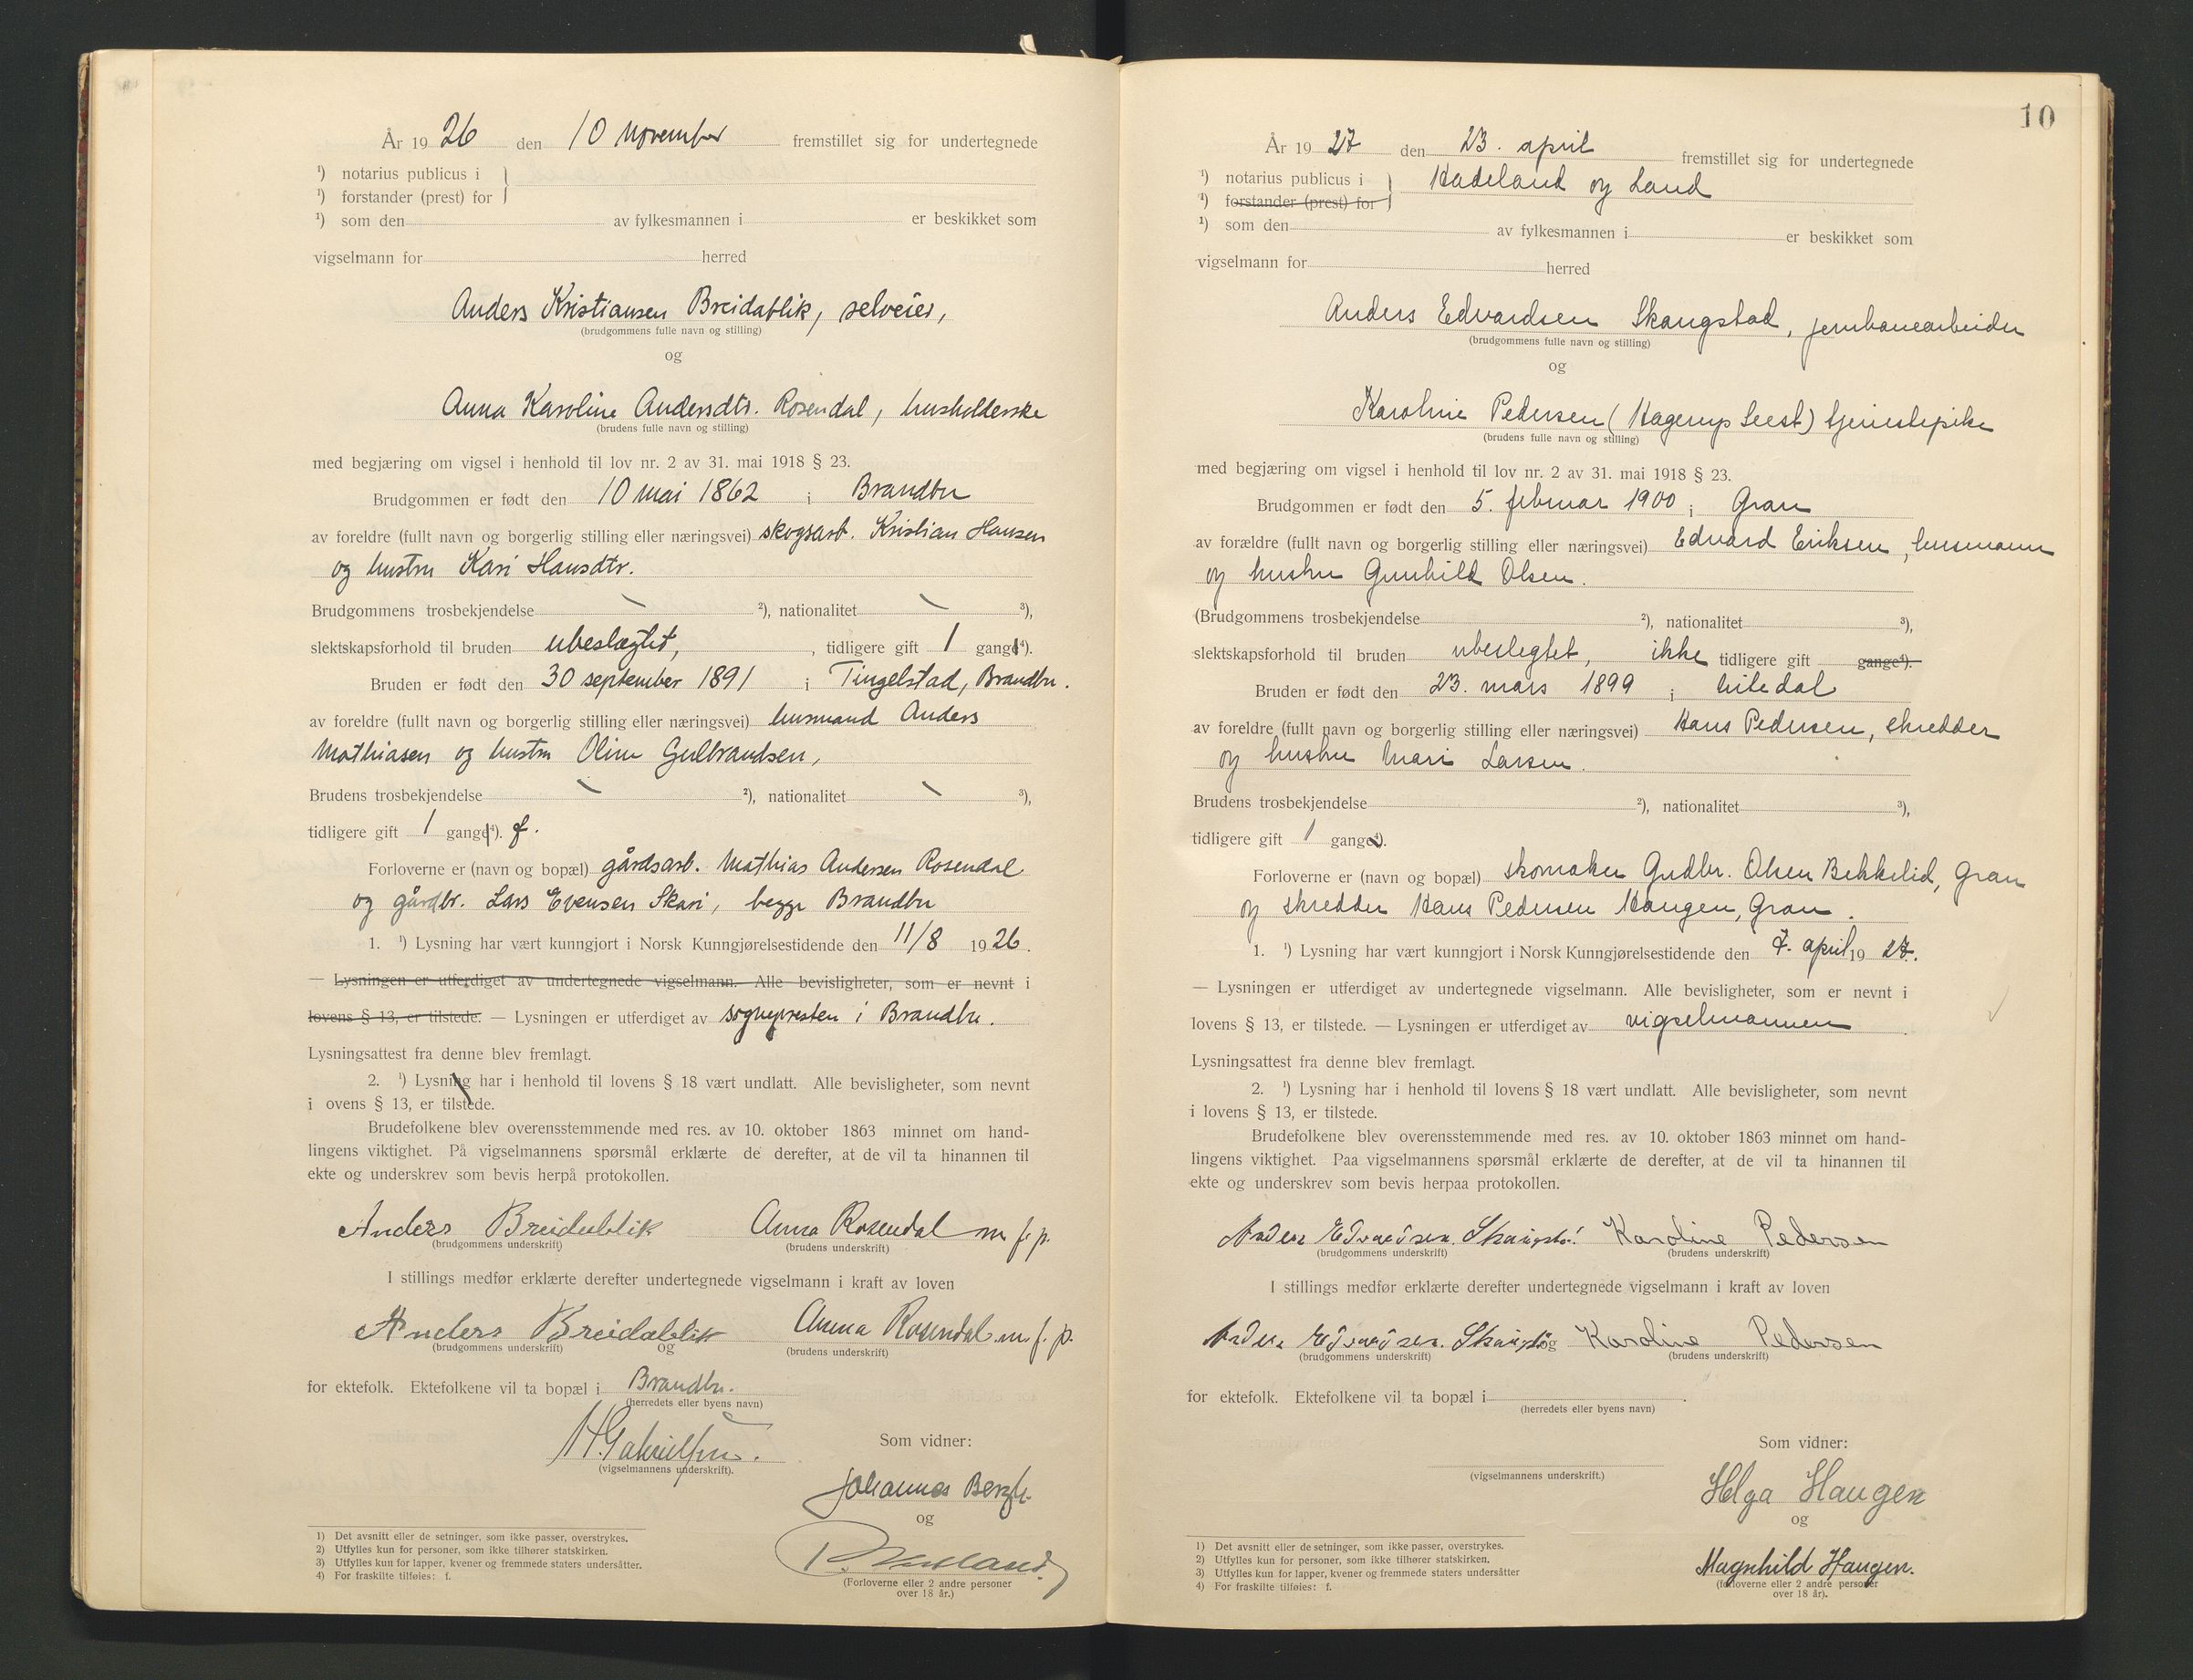 År 1926 den 10 november fremstillet sig for undertegnede
¹) notarius publicus i
¹) forstander (prest) for
¹) som den av fylkesmannen i er beskikket som
vigselmann for herred
Anders Kristiansen Breidablik, selveier,
(brudgommens fulle navn og stilling)
og
Anna Karoline Andersdtr. Rosendal, husholderske
(brudens fulle navn og stilling)
med begjæring om vigsel i henhold til lov nr. 2 av 31. mai 1918 § 23.
Brudgommen er født den 10 mai 1862 i Brandbu
av foreldre (fullt navn og borgerlig stilling eller næringsvei) skogsarb. Kristian Hansen
og hustru Kari Hansdtr.
Brudgommens trosbekjendelse ²), nationalitet ³),
slektskapsforhold til bruden ubeslægtet, , tidligere gift 1 gang⁴).
Bruden er født den 30 september 1891 i Tingelstad, Brandbu.
av foreldre (fullt navn og borgerlig stilling eller næringsvei) husmand Anders
Mathiasen og hustru Oline Gulbrandsen,
Brudens trosbekjendelse ²), nationalitet ³),
tidligere gift 1 gang⁴). f.
Forloverne er (navn og bopæl) gårdsarb. Mathias Andersen Rosendal
og gårdbr. Lars Evensen Skari, begge Brandbu
1. ¹) Lysning har vært kunngjort i Norsk Kunngjørelsestidende den 11/8 1926.
— Lysningen er utferdiget av undertegnede vigselmann. Alle bevisligheter, som er nevnt i
lovens § 13, er tilstede. — Lysningen er utferdiget av sognepresten i Brandbu.
Lysningsattest fra denne blev fremlagt.
2. ¹) Lysning har i henhold til lovens § 18 vært undlatt. Alle bevisligheter, som nevnt
i ovens § 13, er tilstede.
Brudefolkene blev overensstemmende med res. av 10. oktober 1863 minnet om hand-
lingens viktighet. På vigselmannens spørsmål erklærte de derefter, at de vil ta hinannen til
ekte og underskrev som bevis herpå protokollen.
Anders Breidablik Anna Rosendal m. f. p.
(brudgommens underskrift) (brudens underskrift)
I stillings medfør erklærte derefter undertegnede vigselmann i kraft av loven
Anders Breidablik og Anna Rosendal m. f. p.
(brudgommens underskrift) (brudens underskrift)
for ektefolk. Ektefolkene vil ta bopæl i Brandbu.
(herredets eller byens navn)
(vigselmannens underskrift).
Som vidner:
Johannes
og
(Forloverne eller 2 andre personer
over 18 år.)
1) Det avsnitt eller de setninger, som ikke passer, overstrykes.
2) Utfylles kun for personer, som ikke tilhører statskirken.
3) Utfylles kun for lapper, kvener og fremmede staters undersåtter.
4) For fraskilte tilføies: f.
10
År 1927 den 23. april fremstillet sig for undertegnede
¹) notarius publicus i Hadeland og Land
¹) forstander (prest) for
¹) som den av fylkesmannen i er beskikket som
vigselmann for herred
Anders Edvardsen Skangstad, jernbanearbeider
(brudgommens fulle navn og stilling)
og
Karoline Pedersen (Hagerup Seest) tjenestepike
(brudens fulle navn og stilling)
med begjæring om vigsel i henhold til lov nr. 2 av 31. mai 1918 § 23.
Brudgommen er født den 5. februar 1900 i Gran
av forældre (fullt navn og borgerlig stilling eller næringsvei) Edvard Eriksen, husmann
og hustru Gunhild Olsen.
(Brudgommens trosbekjendelse ²), nationalitet ³),
slektskapsforhold til bruden ubeslegtet, ikke tidligere gift gange⁴).
Bruden er født den 23. mars 1899 i
av foreldre (fullt navn og borgerlig stilling eller næringsvei) Hans Pedersen, skredder
og hustru Mari Larsen.
Brudens trosbekjendelse ²), nationalitet ³),
tidligere gift 1 gang⁴).
Forloverne er (navn og bopæl) skomaker Gudbr. Olsen Bekkelid, Gran
og skredder Hans Pedersen Haugen, Gran.
1. ¹) Lysning har vært kunngjort i Norsk Kunngjørelsestidende den 7. april 1927.
— Lysningen er utferdiget av undertegnede vigselmann. Alle bevisligheter, som er nevnt i
lovens § 13, er tilstede. — Lysningen er utferdiget av vigselmannen
Lysningsattest fra denne blev fremlagt.
2. ¹) Lysning har i henhold til lovens § 18 vært undlatt. Alle bevisligheter, som nevnt
i lovens § 13, er tilstede.
Brudefolkene blev overensstemmende med res. av 10. oktober 1863 minnet om hand-
lingens viktighet. Paa vigselmannens spørsmål erklærte de derefter, at de vil ta hinannen til
ekte og underskrev som bevis herpaa protokollen.
Anders Edvardsen. Karoline Pedersen
(brudgommens underskrift) (brudens underskrift)
I stillings medfør erklærte derefter undertegnede vigselmann i kraft av loven
Anders Edvardsen. og Karoline Pedersen
(brudgommens underskrift) (brudens underskrift)
for ektefolk. Ektefolkene vil ta bopæl i .
(herredets eller byens navn)
Som vidner:
(vigselmannens underskrift.)
Helga Haugen
og
Magnhild Haugen.
(forloverne eller 2 andre personer
over 18 år).
1) Det avsnitt eller de setninger, som ikke passer, overstrykes.
2) Utfylles kun for personer, som ikke tilhører statskirken.
3) Utfylles kun for lapper, kvener og fremmede staters undersåtter
4) For fraskilte tilføies: f.